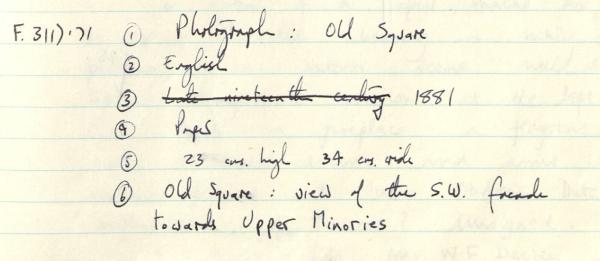 F. 311)'71 ① Photograph : Old Square
② English
③ Late nineteenth century 1881
④ Paper
⑤ 23 cms. high 34 cms. wide
⑥ Old Square : view of the S.W. facade
towards Upper Minories